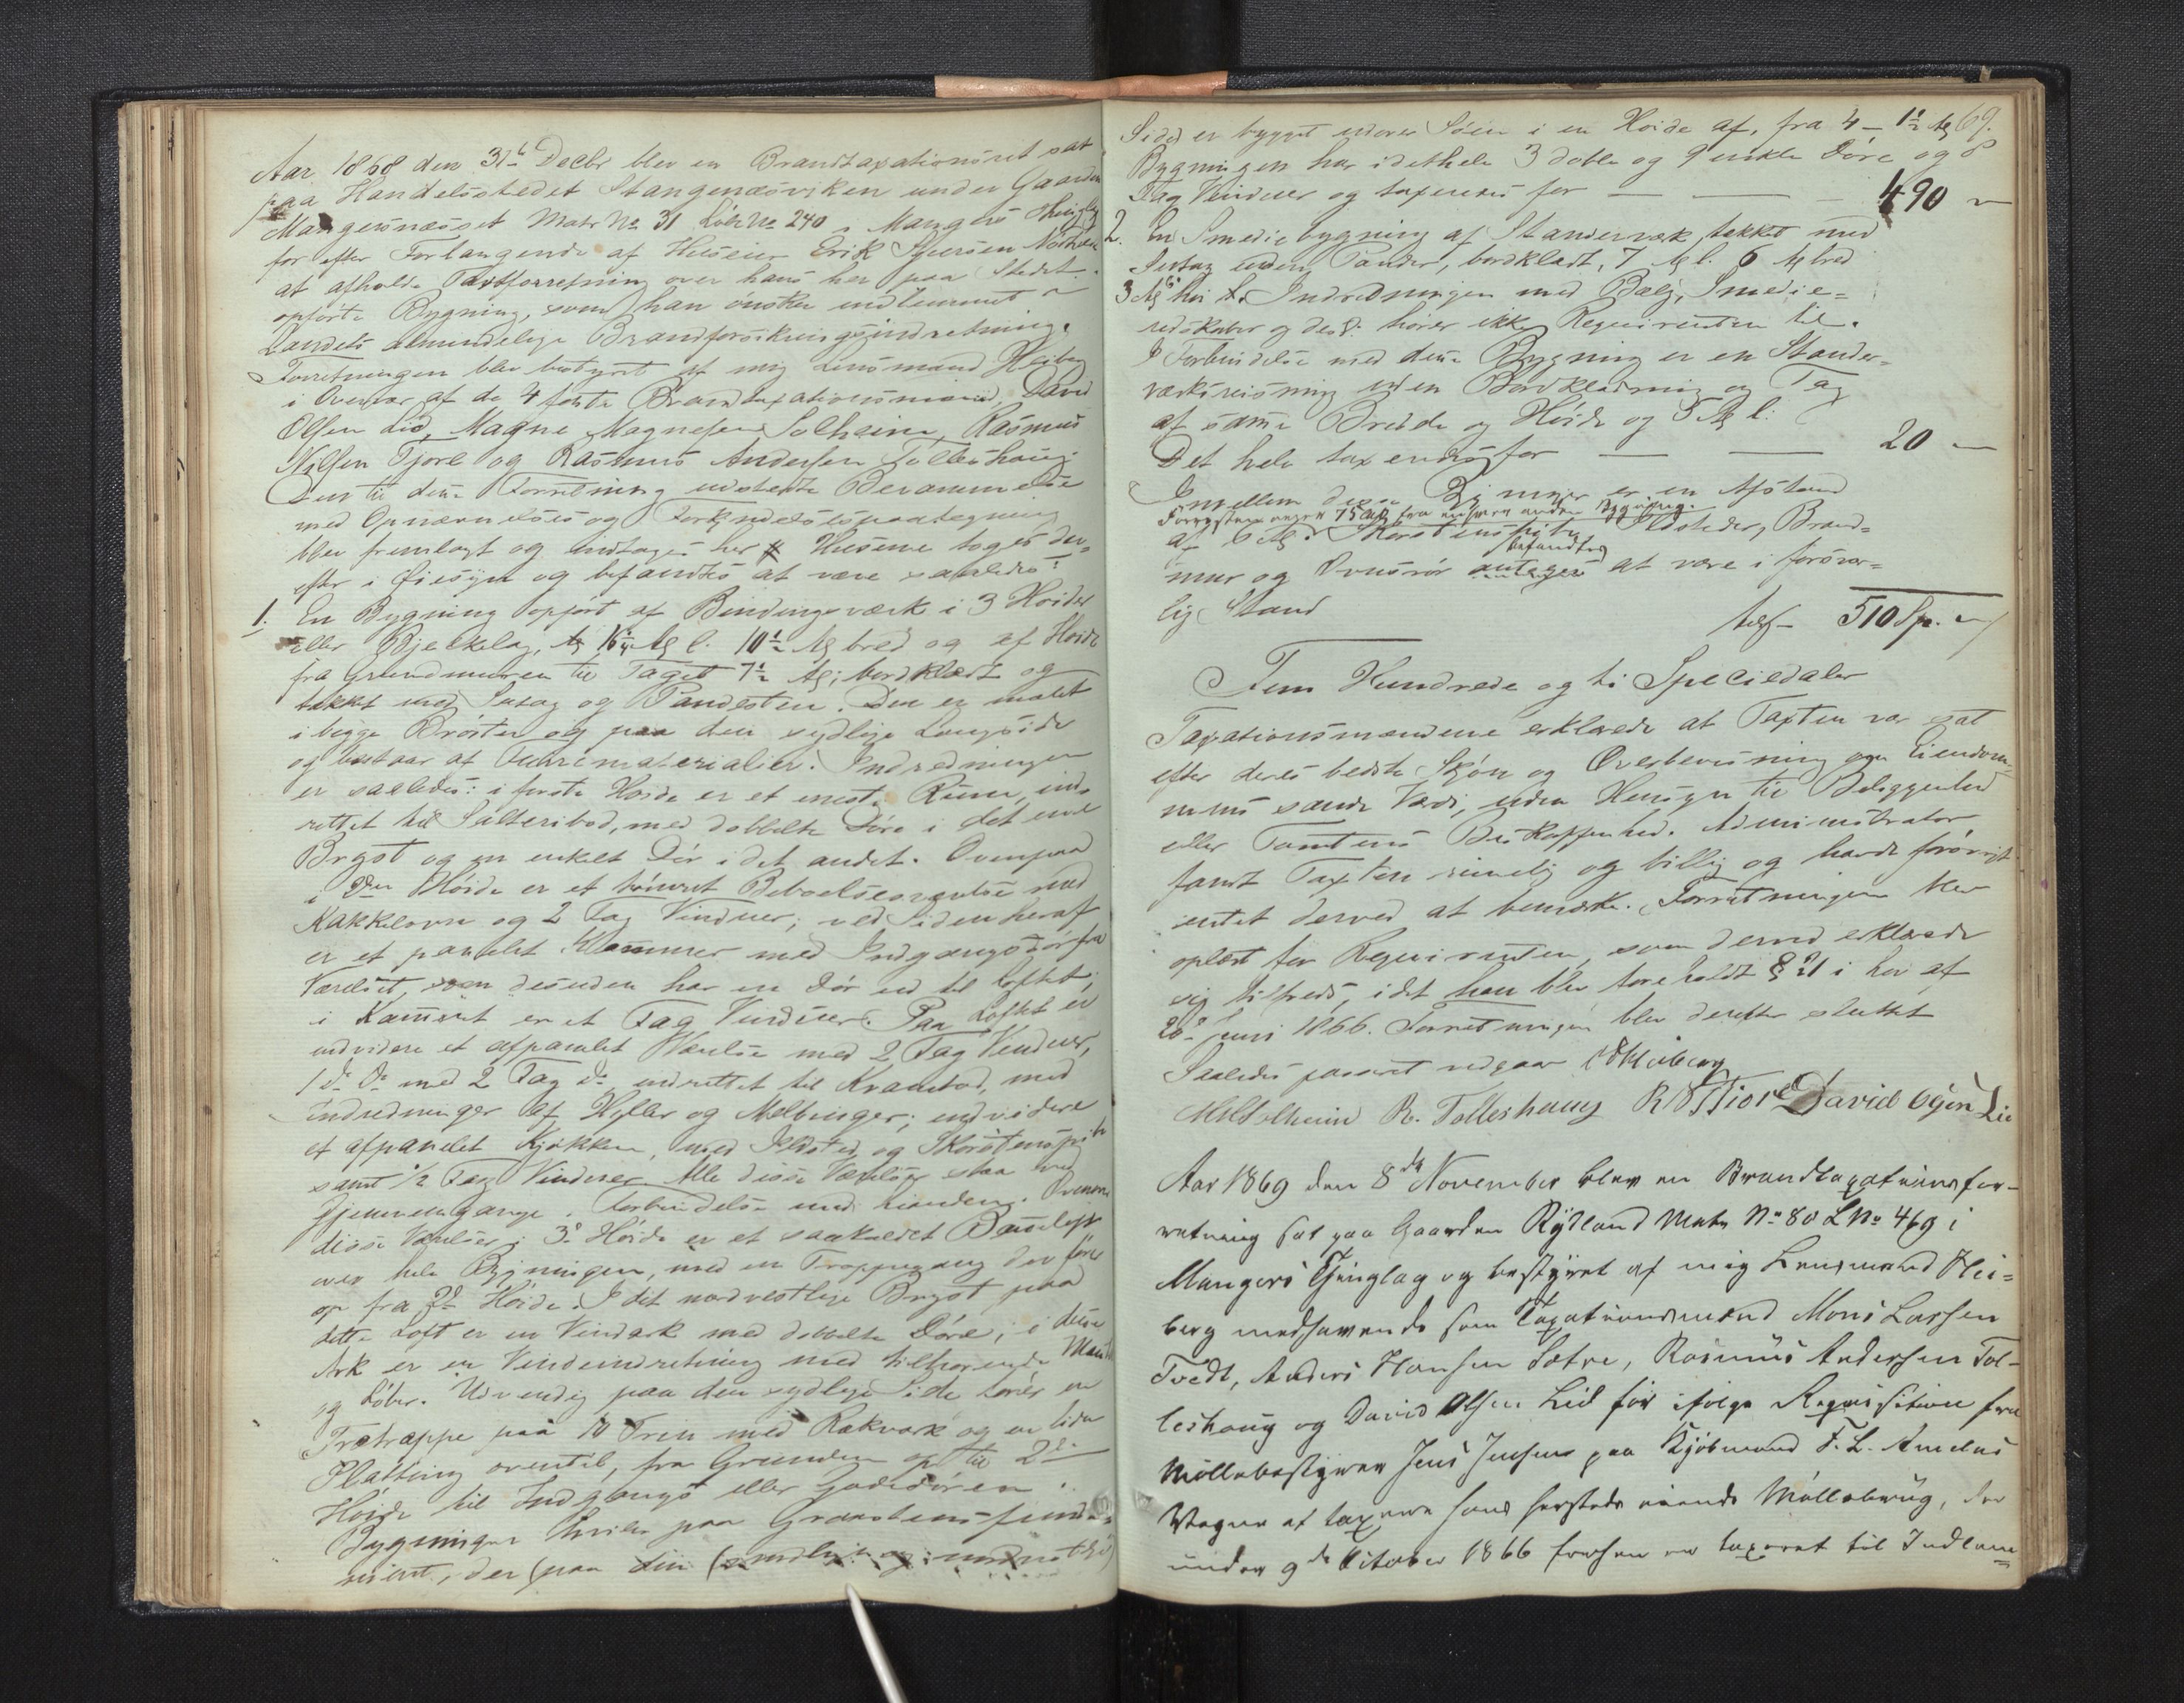 Aar 1868 den 31te Decbr blev en Brandtaxationsret sat
paa Handelsstedet Stangenæsviken under Gaarden
Mangersnæsset Matr No 31 Løbe No 240 i Mangers Thinglag
for efter Forlangende af Huseier Erik
at afholde Taxtforretning over hans her paa Stedet
opførte Bygning, som han ønsker indlemmet i
Landets almindelige Brandforsikringsindretning.
Forretningen blev bestyret af mig Lensmand Heiberg
i Overvær af de 4 faste Brandtaxationsmænd, David
Olsen Lid, Magne Magnesen Solheim, Rasmus
Nilsen Fjore og Rasmus Andersen Tolleshaug.
Den til denne Forretning udstedte Berammelse
med Opnævnelses og Forkyndelsespaategning
blev fremlagt og indtages her Husene toges der-
efter i Øiesyn og befandtes at være saaledes:
1. En Bygning opført af Bindingsværk i 3 Høider
eller Bjelkelag, 16 Al l. 10½ Al bred og af Høide
fra Grundmuren til Taget 7½ Al; bordklædt og
tækket med Sutag og Pandesten. Den er malet
i begge Brøster og paa den sydlige Langside
og bestaar af Furrematerialier. Indredningen
er saaledes: i første Høide er et eneste Rum, ind-
rettet til Salteribod, med dobbelte Døre i det ene
Brøst og en enkelt Dør i det andet. Ovenpaa
i 2den Høide er et tømret Beboelsesværelse med
Kakkelovn og 2 Fag Vinduer; ved Siden heraf
er et panelet Kammer med Indgangsdør fra
Værelset, som desuden har en Dør ud til Loftet;
i Kammret er et Fag Vinduer. Paa Loftet er
endvidere et afpanelet Værelse med 2 Fag Vinduer,
1 do do med 2 Fag do, indrettet til Krambod, med
Indredninger af Hyller og Melbinger; endvidere
et afpanelet Kjøkken, med Ildsted og Skorstenspibe
samt ½ Fag Vinduer. Alle disse Værelser staa ved
Gjennemgange i Forbindelse med hinanden. Ovenom
disse Værelser i 3de Høide er et saakaldet
over hele Bygningen, med en Trappegang der fører
op fra 2de Høide. I det nordvestlige Brøst paa
dette Loft er en Vindark med dobbelte Døre; i denne
Ark er en Vindeindretning med tilhørende
og Løber. Udvendig paa den sydlige Side fører en
Trætrappe paa 10 Trin med Rækværk og en liden
Platting oventil, fra Grunden op til 2den
Høide til Indgangs eller Gadedøren.
Bygningen hviler paa Graastensfunda-
ment, der (paa den (sydlige og nordvestlige)
69.
Side) er bygget udover Søen i en Høide af, fra 4 - 1½ Al
Bygningen har idethele 3 doble og 9 enkle Døre og 8
Fag Vinduer og taxeredes for — — — 490 "
2. En Smediebygning af Standerværk, tækket med
Sutag uden Pander, bordklædt, 7 Al l. 6 Al bred
3 Al høi Indredningen med Bælg, Smedie-
redskaber og desl: hører ikke Requirenten til.
I Forbindelse med denne Bygning er en Stander-
værksreisning uden Bordklædning og Tag
af samme Bredde og Høide og 5 Al l:
Det hele taxeredes for — — 20 "
Imellem disse Bygninger er en Afstand
Forøvrigt 75 Al fra enhver anden Bygning.
af 6 Al. Skorstenspiber, Ildsteder, Brand-
befandtes
mur og Ovnsrør antages at være i forsvar-
lig Stand
tils - 510 Sp. "
Fem Hundrede og ti Speciedaler
Taxationsmændene erklærede at Taxten var sat
efter deres bedste Skjøn og Overbevisning om Eiendom-
mens sande Værdi, uden Hensyn til Beliggenhed
eller Tomtens Beskaffenhed. Administrator
fandt Taxten rimelig og billig og havde forøvrigt
intet derved at bemærke. Forretningen blev
oplæst for Requirenten, som dermed erklærede
sig tilfreds, idet han blev foreholdt § 21 i Lov af
20de Juni 1866. Forretningen blev derefter sluttet
Saaledes passeret vedgaar Heiberg
MMSolheim R. Tolleshaug R N Fiore David Olsen Lie
Aar 1869 den 8de November blev en Brandtaxationsfor-
retning sat paa Gaarden Rÿdland Matr No 80 L No 469 i
Mangers Thinglag og bestÿret af mig Lensmand Hei-
berg medhavende som Taxationsmænd Mons Larsen
Tvedt, Anders Hansen Sætre, Rasmus Andersen Tol-
leshaug og David Olsen Lid for ifølge Requisition fra
Møllebestÿrer Jens Jensen paa Kjøbmand F. L. Amelns
Vegne at taxere hans hersteds eiende Møllebrug, der
under 9de October 1866 forhen er taxeret til Indlem-